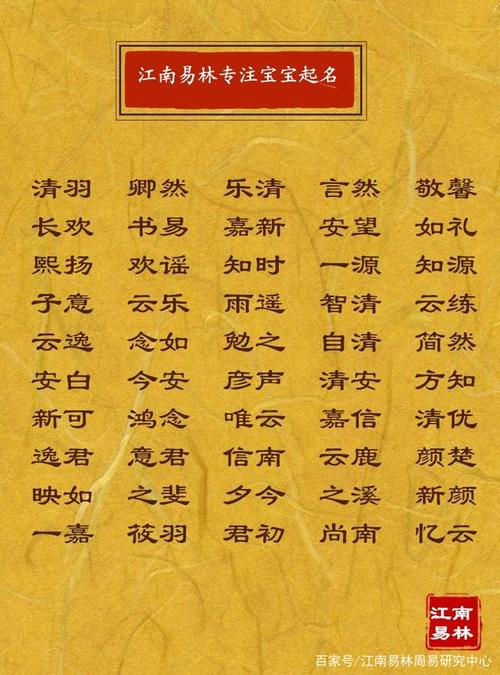 江南易林专注宝宝起名
清羽 卿然 乐清 言然 敬馨
长欢 书易 嘉新 安望 如礼
熙扬 欢谣 知时 一源 知源
子意 云乐 雨遥 智清 云练
云逸 念如 勉之 自清 简然
安白 今安 彦声 清安 方知
新可 鸿念 唯云 嘉信 清优
逸君 意君 信南 云鹿 颜楚
映如 之斐 夕今 之溪 新颜
一嘉 筱羽 君初 尚南 忆云
江南
易林
百家号/江南易林周易研究中心